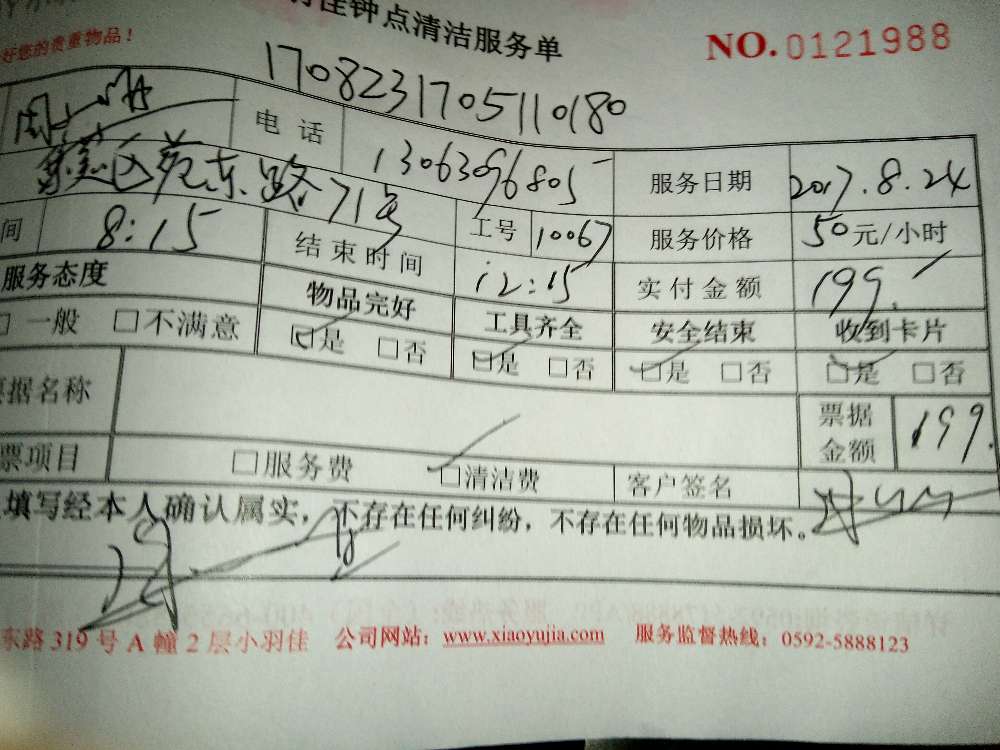 佳钟点清洁服务单
NO.0121988
好您的贵重物品!
1708231705110180
电话 13063096805 服务日期 2017.8.24
集美区苑东路71号
间 8:15 结束时间 工号 10067 服务价格 50元/小时
12:15 实付金额 199.
服务态度 物品完好 工具齐全 安全结束 收到卡片
□一般 □不满意 □是 □否 □是 □否 □是 □否 □是 □否
据名称 票据金额 199.
票项目 □服务费 □清洁费 客户签名
填写经本人确认属实,不存在任何纠纷,不存在任何物品损坏。
东路319号A幢2层小羽佳 公司网站:www.xiaoyujia.com 服务监督热线:0592-5888123